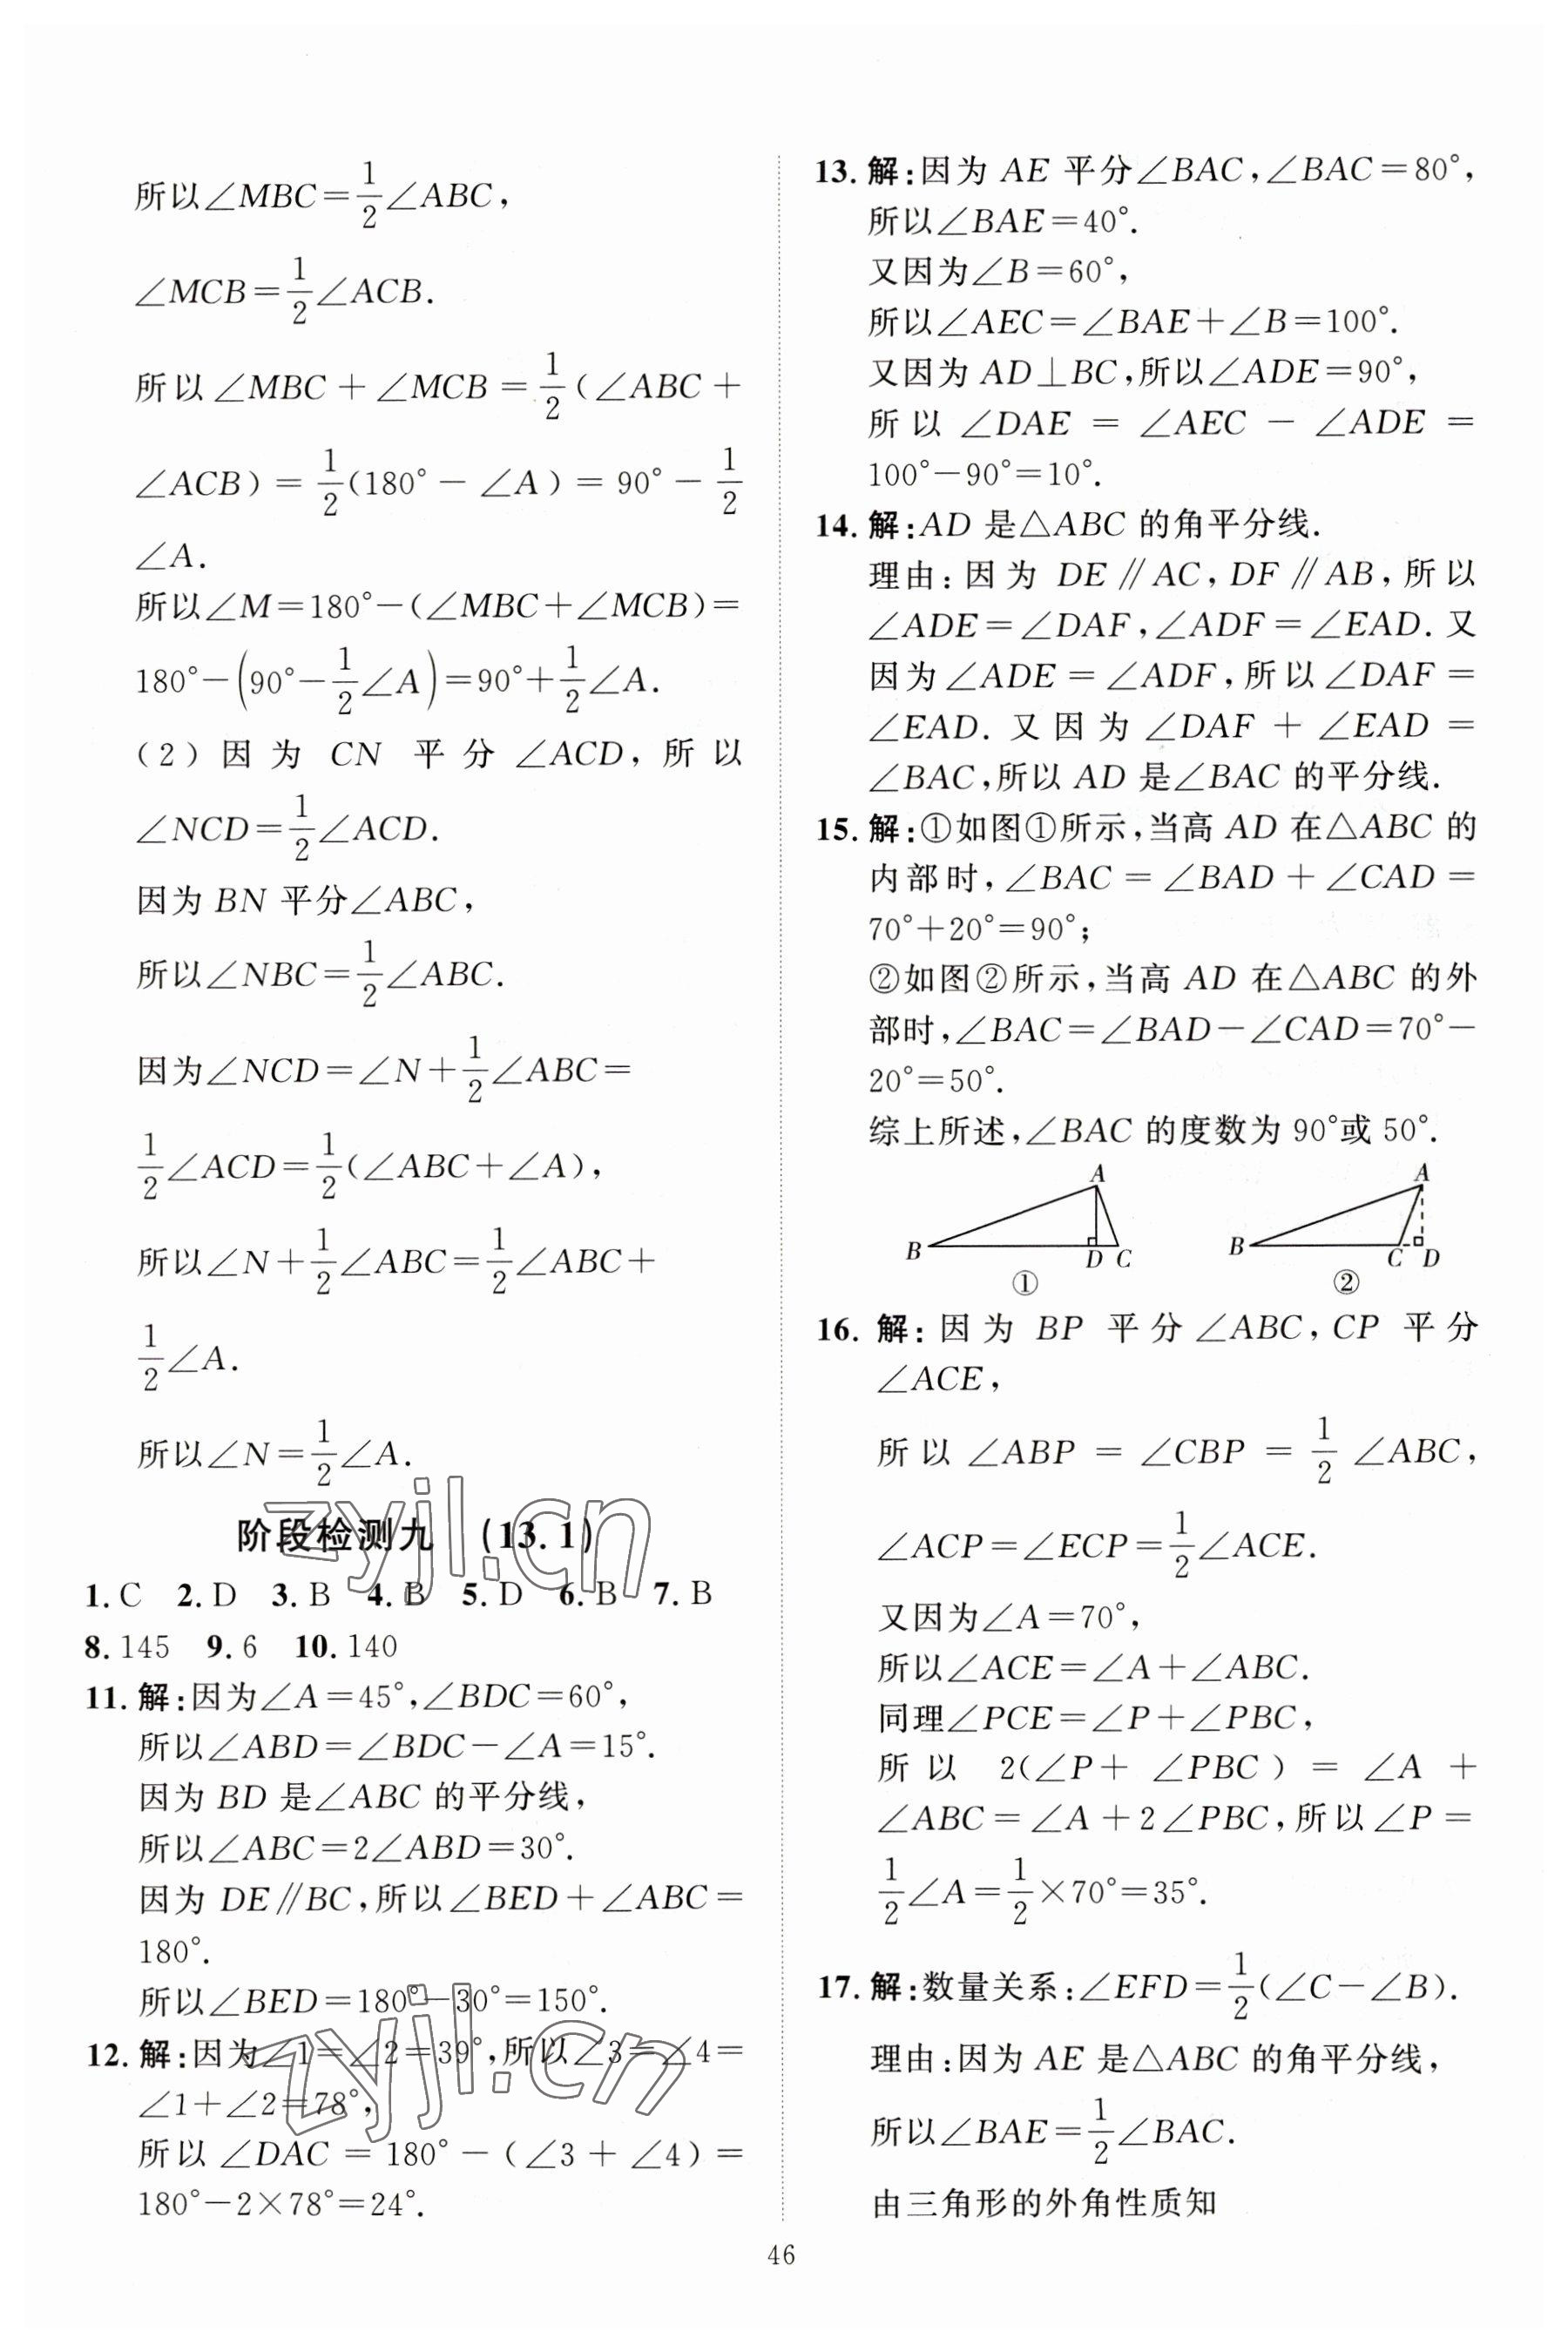 所以∠MBC=1/2∠ABC,
∠MCB=1/2∠ACB.
所以∠MBC+∠MCB=1/2(∠ABC+
∠ACB)=1/2(180°-∠A)=90°-1/2
∠A.
所以∠M=180°-(∠MBC+∠MCB)=
180°-(90°-1/2∠A)=90°+1/2∠A.
(2)因为 CN 平分∠ACD,所以
∠NCD=1/2∠ACD.
因为 BN 平分∠ABC,
所以∠NBC=1/2∠ABC.
因为∠NCD=∠N+1/2∠ABC=
1/2∠ACD=1/2(∠ABC+∠A),
所以∠N+1/2∠ABC=1/2∠ABC+
1/2∠A.
所以∠N=1/2∠A.
阶段检测九 (13.1)
1.C 2.D 3.B 4.B 5.D 6.B 7.B
8.145 9.6 10.140
11.解:因为∠A=45°,∠BDC=60°,
所以∠ABD=∠BDC-∠A=15°.
因为 BD 是∠ABC 的平分线,
所以∠ABC=2∠ABD=30°.
因为 DE∥BC,所以∠BED+∠ABC=
180°.
所以∠BED=180°-30°=150°.
12.解:因为∠1=∠2=39°,所以∠3=∠4=
∠1+∠2=78°,
所以∠DAC=180°-(∠3+∠4)=
180°-2×78°=24°.
13.解:因为 AE 平分∠BAC,∠BAC=80°,
所以∠BAE=40°.
又因为∠B=60°,
所以∠AEC=∠BAE+∠B=100°.
又因为 AD⊥BC,所以∠ADE=90°,
所以∠DAE=∠AEC-∠ADE=
100°-90°=10°.
14.解:AD 是△ABC 的角平分线.
理由:因为 DE∥AC,DF∥AB,所以
∠ADE=∠DAF,∠ADF=∠EAD.又
因为∠ADE=∠ADF,所以∠DAF=
∠EAD.又因为∠DAF+∠EAD=
∠BAC,所以 AD 是∠BAC 的平分线.
15.解:①如图①所示,当高 AD 在△ABC 的
内部时,∠BAC=∠BAD+∠CAD=
70°+20°=90°;
②如图②所示,当高 AD 在△ABC 的外
部时,∠BAC=∠BAD-∠CAD=70°-
20°=50°.
综上所述,∠BAC 的度数为 90°或 50°.
A
B
D C
①
A
B
C D
②
16.解:因为 BP 平分∠ABC,CP 平分
∠ACE,
所以∠ABP=∠CBP=1/2∠ABC,
∠ACP=∠ECP=1/2∠ACE.
又因为∠A=70°,
所以∠ACE=∠A+∠ABC.
同理∠PCE=∠P+∠PBC,
所以 2(∠P+∠PBC)=∠A+
∠ABC=∠A+2∠PBC,所以∠P=
1/2∠A=1/2×70°=35°.
17.解:数量关系:∠EFD=1/2(∠C-∠B).
理由:因为 AE 是△ABC 的角平分线,
所以∠BAE=1/2∠BAC.
由三角形的外角性质知
46
zyjl.cn
zyjl.cn